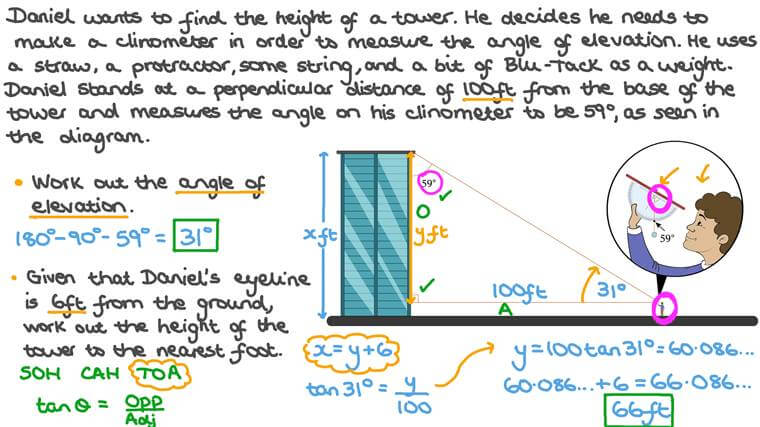 Daniel wants to find the height of a tower. He decides he needs to
make a clinometer in order to measure the angle of elevation. He uses
a straw, a protractor, some string, and a bit of Blu-Tack as a weight.
Daniel stands at a perpendicular distance of 100ft from the base of the
tower and measures the angle on his clinometer to be 59°, as seen in
the diagram.
• Work out the angle of
elevation.
180° - 90° - 59° = 31°
• Given that Daniel's eyeline
is 6ft from the ground,
work out the height of the
tower to the nearest foot.
SOH CAH TOA
tan θ = Opp
Adj
x ft
59°
O
y ft
100ft
31°
A
59°
x = y + 6
tan 31° = y
100
y = 100 tan 31° = 60.086...
60.086... + 6 = 66.086...
66ft